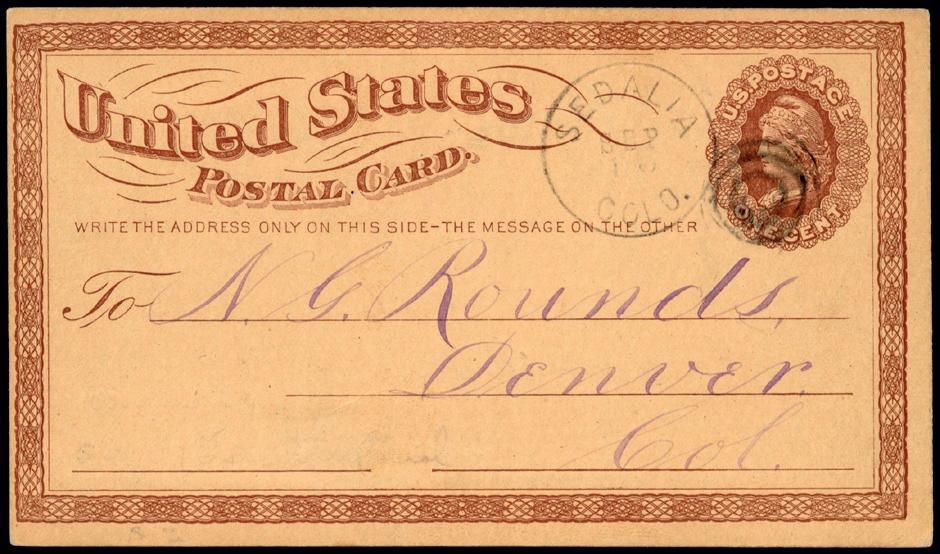 United States
POSTAL CARD.
WRITE THE ADDRESS ONLY ON THIS SIDE–THE MESSAGE ON THE OTHER
SEDALIA
SEP
COLO.
U.S. POSTAGE
ONE CENT
To N. G. Rounds,
Denver.
Col.